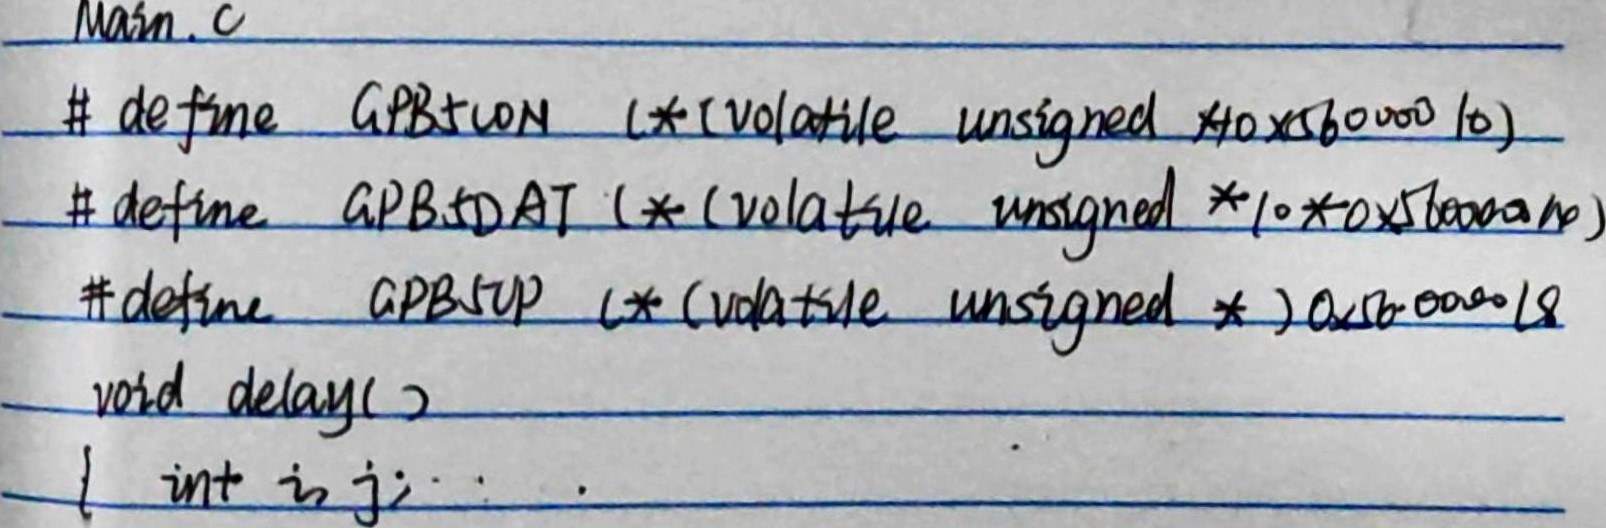 Main.c
# define GPB5CON (*(volatile unsigned *)0x56000010)
# define GPB5DAT (*(volatile unsigned *(0*0x56000010)
#define GPB5UP (*(volatile unsigned *)0x56000018
void delay()
{ int i, j;